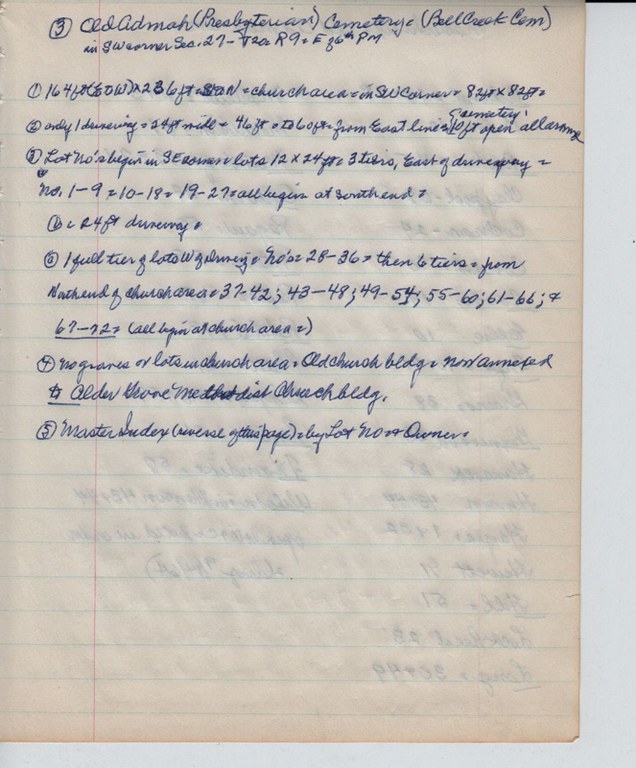 ③ Old Admah (Presbyterian) Cemetery = (Bell Creek Cem)
in SW corner Sec. 27 - T20 R9 = E of 6th PM
① 164 ft (E to W) x 236 ft = S to N = church area = in SW Corner = 82 ft x 82 ft =
cemetery.
② only 1 driveway = 24 ft wide = 46 ft = to 60 ft = from East line = 10 ft open all around
③ Lot No's begin in SE corner = lots 12 x 24 ft = 3 tiers, East of driveway =
No. 1 - 9 = 10 - 18 = 19 - 27 = all begin at South end =
24 ft driveway =
1 full tier of lots W of driveway = No's = 28 - 36 = then 6 tiers = from
North end of church area = 37 - 42; 43 - 48; 49 - 54; 55 - 60; 61 - 66; &
67 - 72 = (all begin at church area =)
④ No graves or lots in church area = Old church bldg = now annexed
to Alder Grove Methodist Church bldg.
⑤ Master Index (reverse of this page) = by Lot No & Owner =